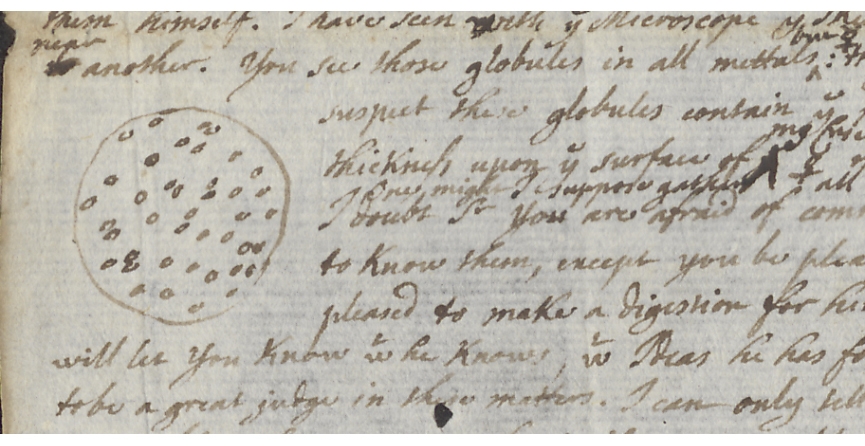 them himself. I have seen with ẙ Microscope ẙ
near
another. You see those globules in all mettals:
but
suspect these globules contain ẙ
thickness upon ẙ surface of
One might I suppose gather all
I doubt Sr you are afraid of com
to know them, except you be plea
pleased to make a digestion for hi
will let you know w̃ he knows, w̃ Ideas he has fo
to be a great judge in these matters. I can only tell